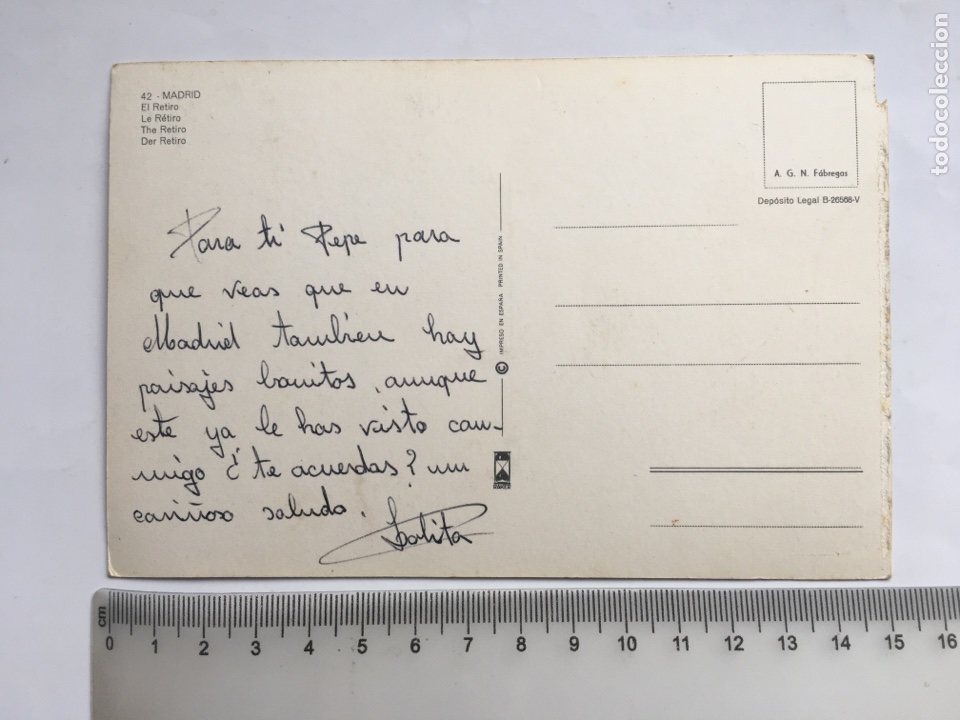 42 - MADRID
El Retiro
Le Rétiro
The Retiro
Der Retiro
A. G. N. Fábregas
Depósito Legal B-26568-V
Para ti Pepe para
que veas que en
Madrid también hay
paisajes bonitos, aunque
este ya le has visto con-
migo ¿te acuerdas? un
cariñoso saludo.
Lolita
IMPRESO EN ESPAÑA PRINTED IN SPAIN
©
todocoleccion
cm
0 1 2 3 4 5 6 7 8 9 10 11 12 13 14 15 16